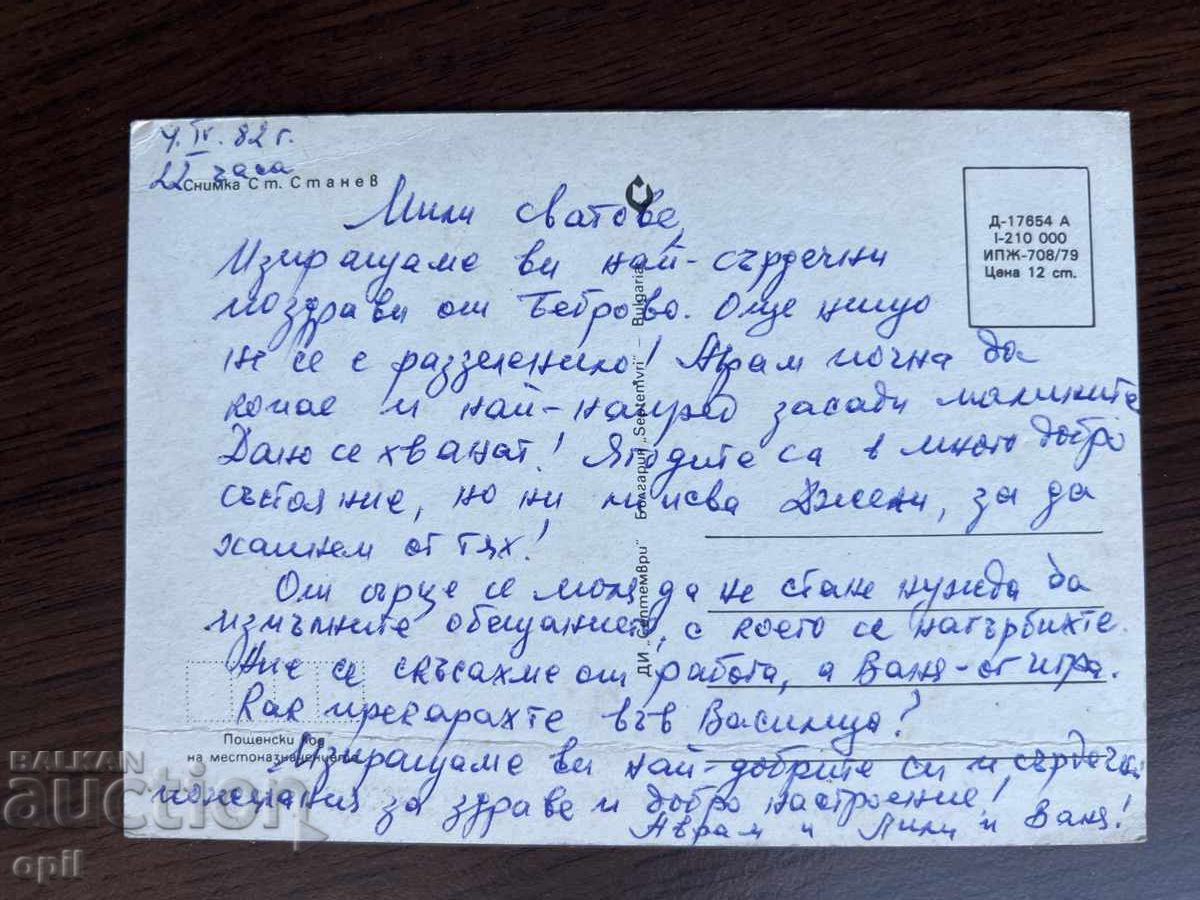 4.IV.82 г.
22 часа
Снимка Ст. Станев
Мили сватове,
Изпращаме ви най-сърдечни
поздрави от Беброво. Още нищо
не се е раззеленило! Аврам почна да
копае и най-напред засади малините
Дано се хванат! Ягодите са в много добро
състояние, но ни липсва Джени, за да
хапнем от тях!
От сърце се моля да не стане нужда да
изпълните обещанието, с което се натърбихте.
Ние се скъсахме от работа, а Ваня - от игра.
Как прекарахте във Василица?
Изпращаме ви най-добрите си и сърдечни
пожелания за здраве и добро настроение!
Аврам и Лили и Ваня!
Д-17654 А
I-210 000
ИПЖ-708/79
Цена 12 ст.
ДИ „Септември" България „Septemvri" – Bulgaria
Пощенски код
на местоназначението
BALKAN
auction
opil